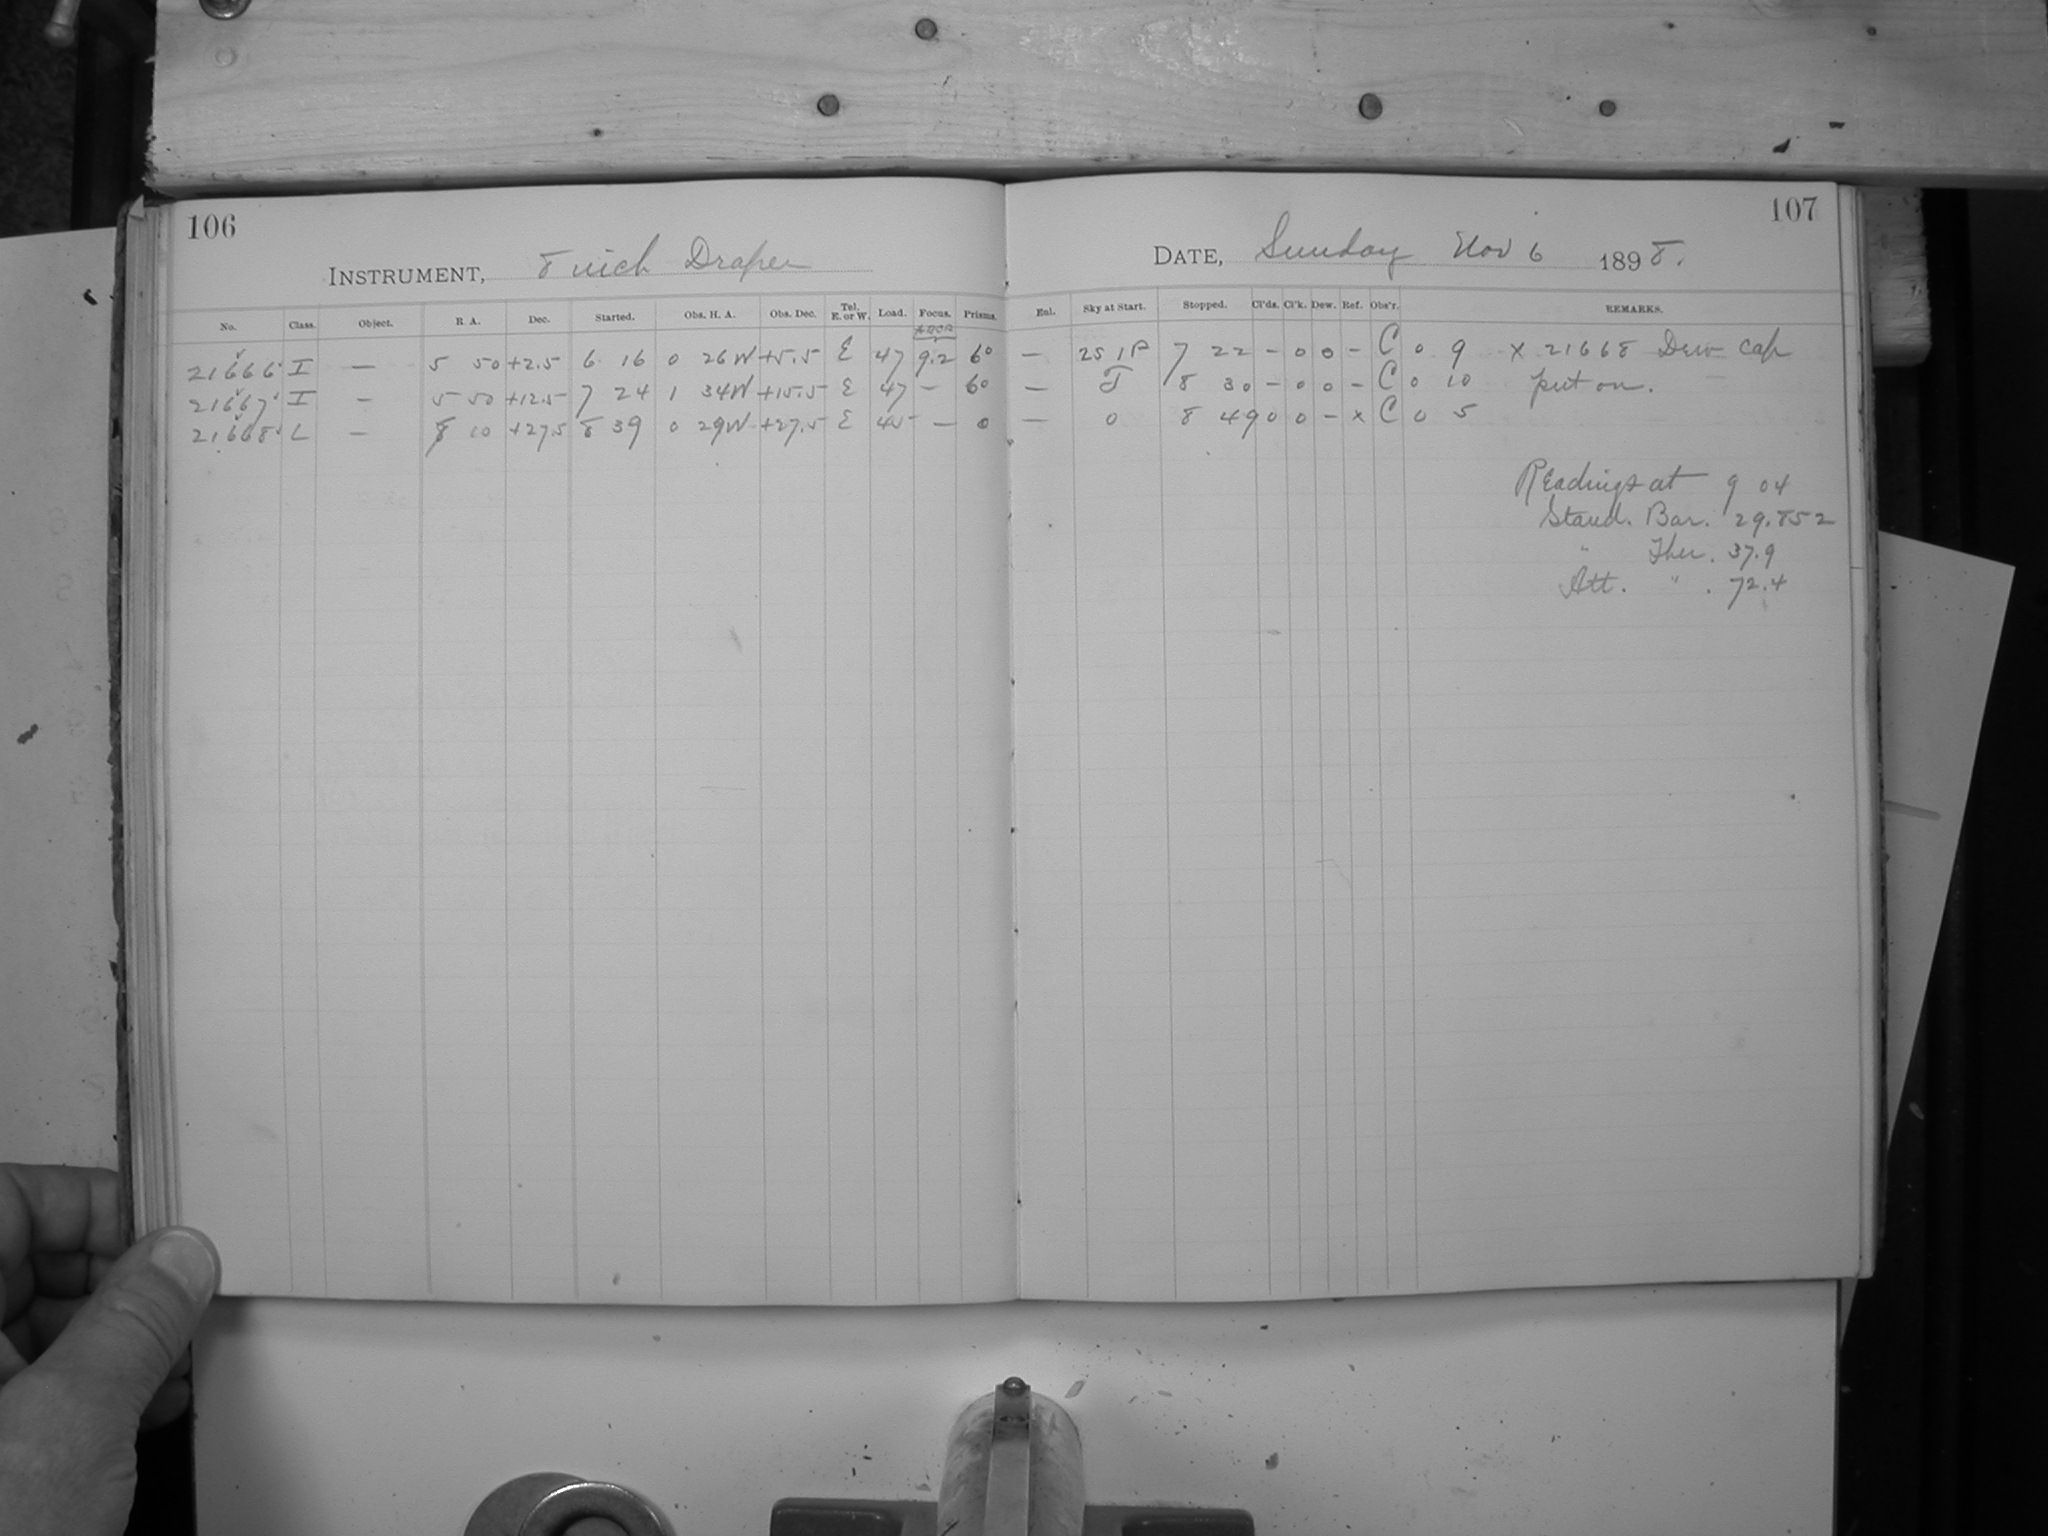 106
107
INSTRUMENT, 8 inch Draper
DATE, Sunday Nov 6 1898.
No. Class. Object. R. A. Dec. Started. Obs. H. A. Obs. Dec. Tel. E. or W. Load. Focus. Prisms. Enl. Sky at Start. Stopped. Cl'ds. Cl'k. Dew. Ref. Obs'r. REMARKS.
21666 I — 5 50 +2.5 6 16 0 26W +5.5 E 47 9.2 60 — 25 1P 7 22 - 0 0 - C 0 9 x 21668 Dew cap
21667 I — 5 50 +12.5 7 24 1 34W +15.5 E 47 — 60 — 8 30 - 0 0 - C 0 10 put on.
21668 L — 8 10 +27.5 8 39 0 29W +27.5 E 45 — 0 — 0 8 49 0 0 - x C 0 5
Readings at 9 04
Stand. Bar. 29.852
" Ther. 37.9
Att. " . 72.4